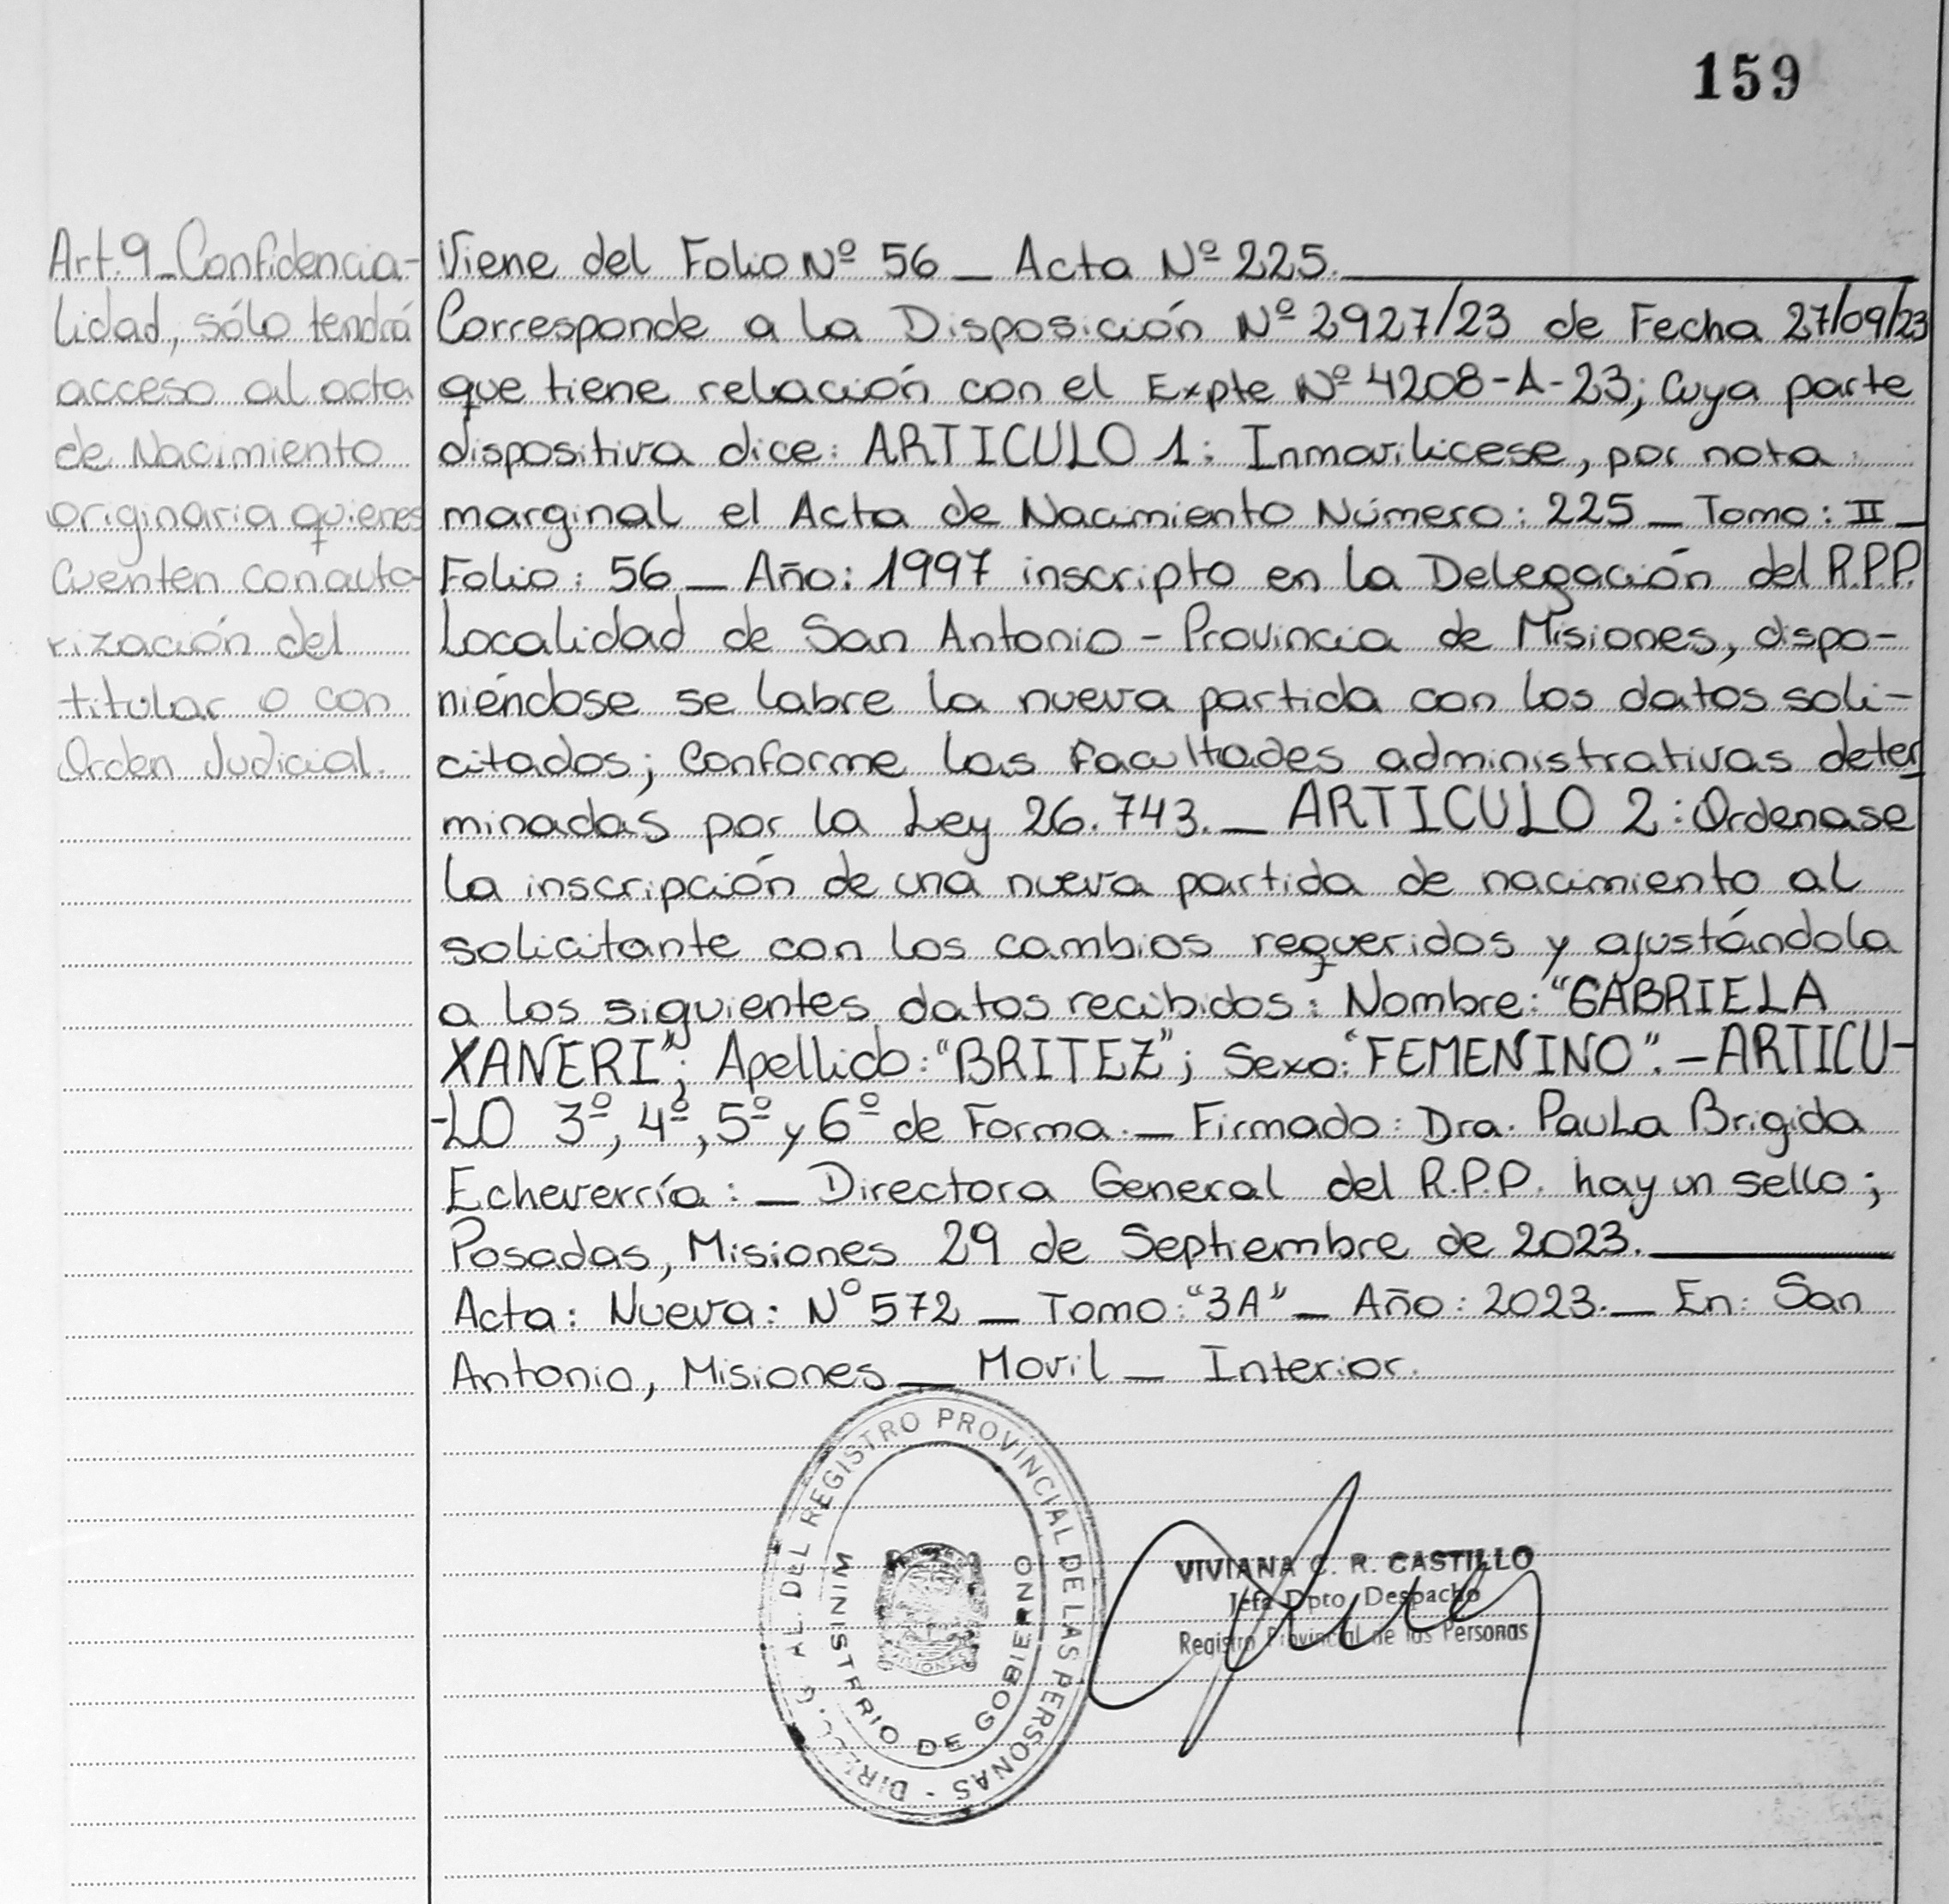 159
Art. 9_Confidencia-
lidad, sólo tendrá
acceso al acta
de Nacimiento
originaria quienes
Cuenten con auto-
rización del
titular o con
Orden Judicial.
Viene del Folio Nº 56 _ Acta Nº 225.
Corresponde a la Disposición Nº 2927/23 de Fecha 27/09/23
que tiene relación con el Expte Nº 4208-A-23; Cuya parte
dispositiva dice: ARTICULO 1: Inmovilicese, por nota
marginal el Acta de Nacimiento Número: 225 _ Tomo: II _
Folio: 56 _ Año: 1997 inscripto en la Delegación del R.P.P.
Localidad de San Antonio - Provincia de Misiones, dispo-
niéndose se labre la nueva partida con los datos soli-
citados; Conforme las Facultades administrativas deter
minadas por la Ley 26.743. _ ARTICULO 2: Ordenase
la inscripción de una nueva partida de nacimiento al
solicitante con los cambios requeridos y ajustándola
a los siguientes datos recibidos: Nombre: "GABRIELA
XANERI"; Apellido: "BRITEZ"; Sexo: "FEMENINO". - ARTICU-
-LO 3º, 4º, 5º y 6º de Forma. _ Firmado: Dra. Paula Brigida
Echeverría: _ Directora General del R.P.P. hay un sello;
Posadas, Misiones 29 de Septiembre de 2023.
Acta: Nueva: Nº 572 _ Tomo: "3A" _ Año: 2023. _ En: San
Antonio, Misiones _ Movil _ Interior.
AL DEL REGISTRO PROVINCIAL DE LAS PERSONAS -
MINISTERIO DE GOBIERNO
VIVIANA C. R. CASTILLO
Jefa Dpto Despacho
Registro Provincial de las Personas